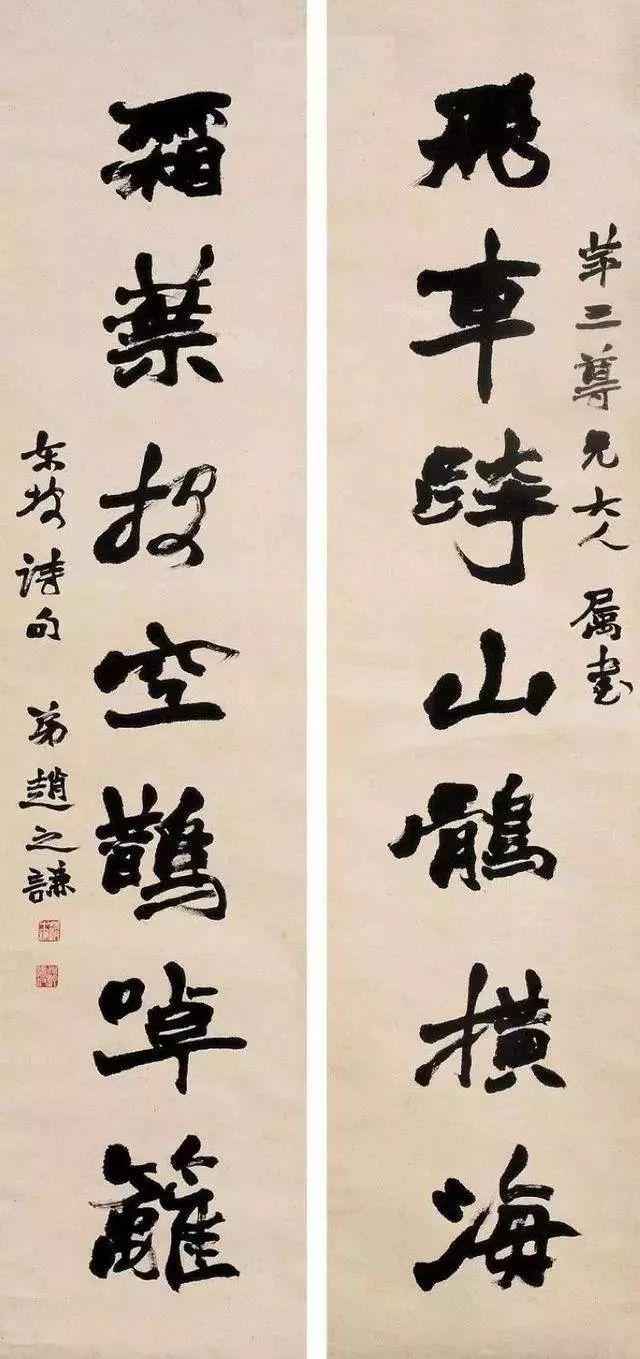 三尊兄大人屬書
飛車跨山鶻橫海
霜葉投空鵲啄籬
東坡詩句 弟趙之謙